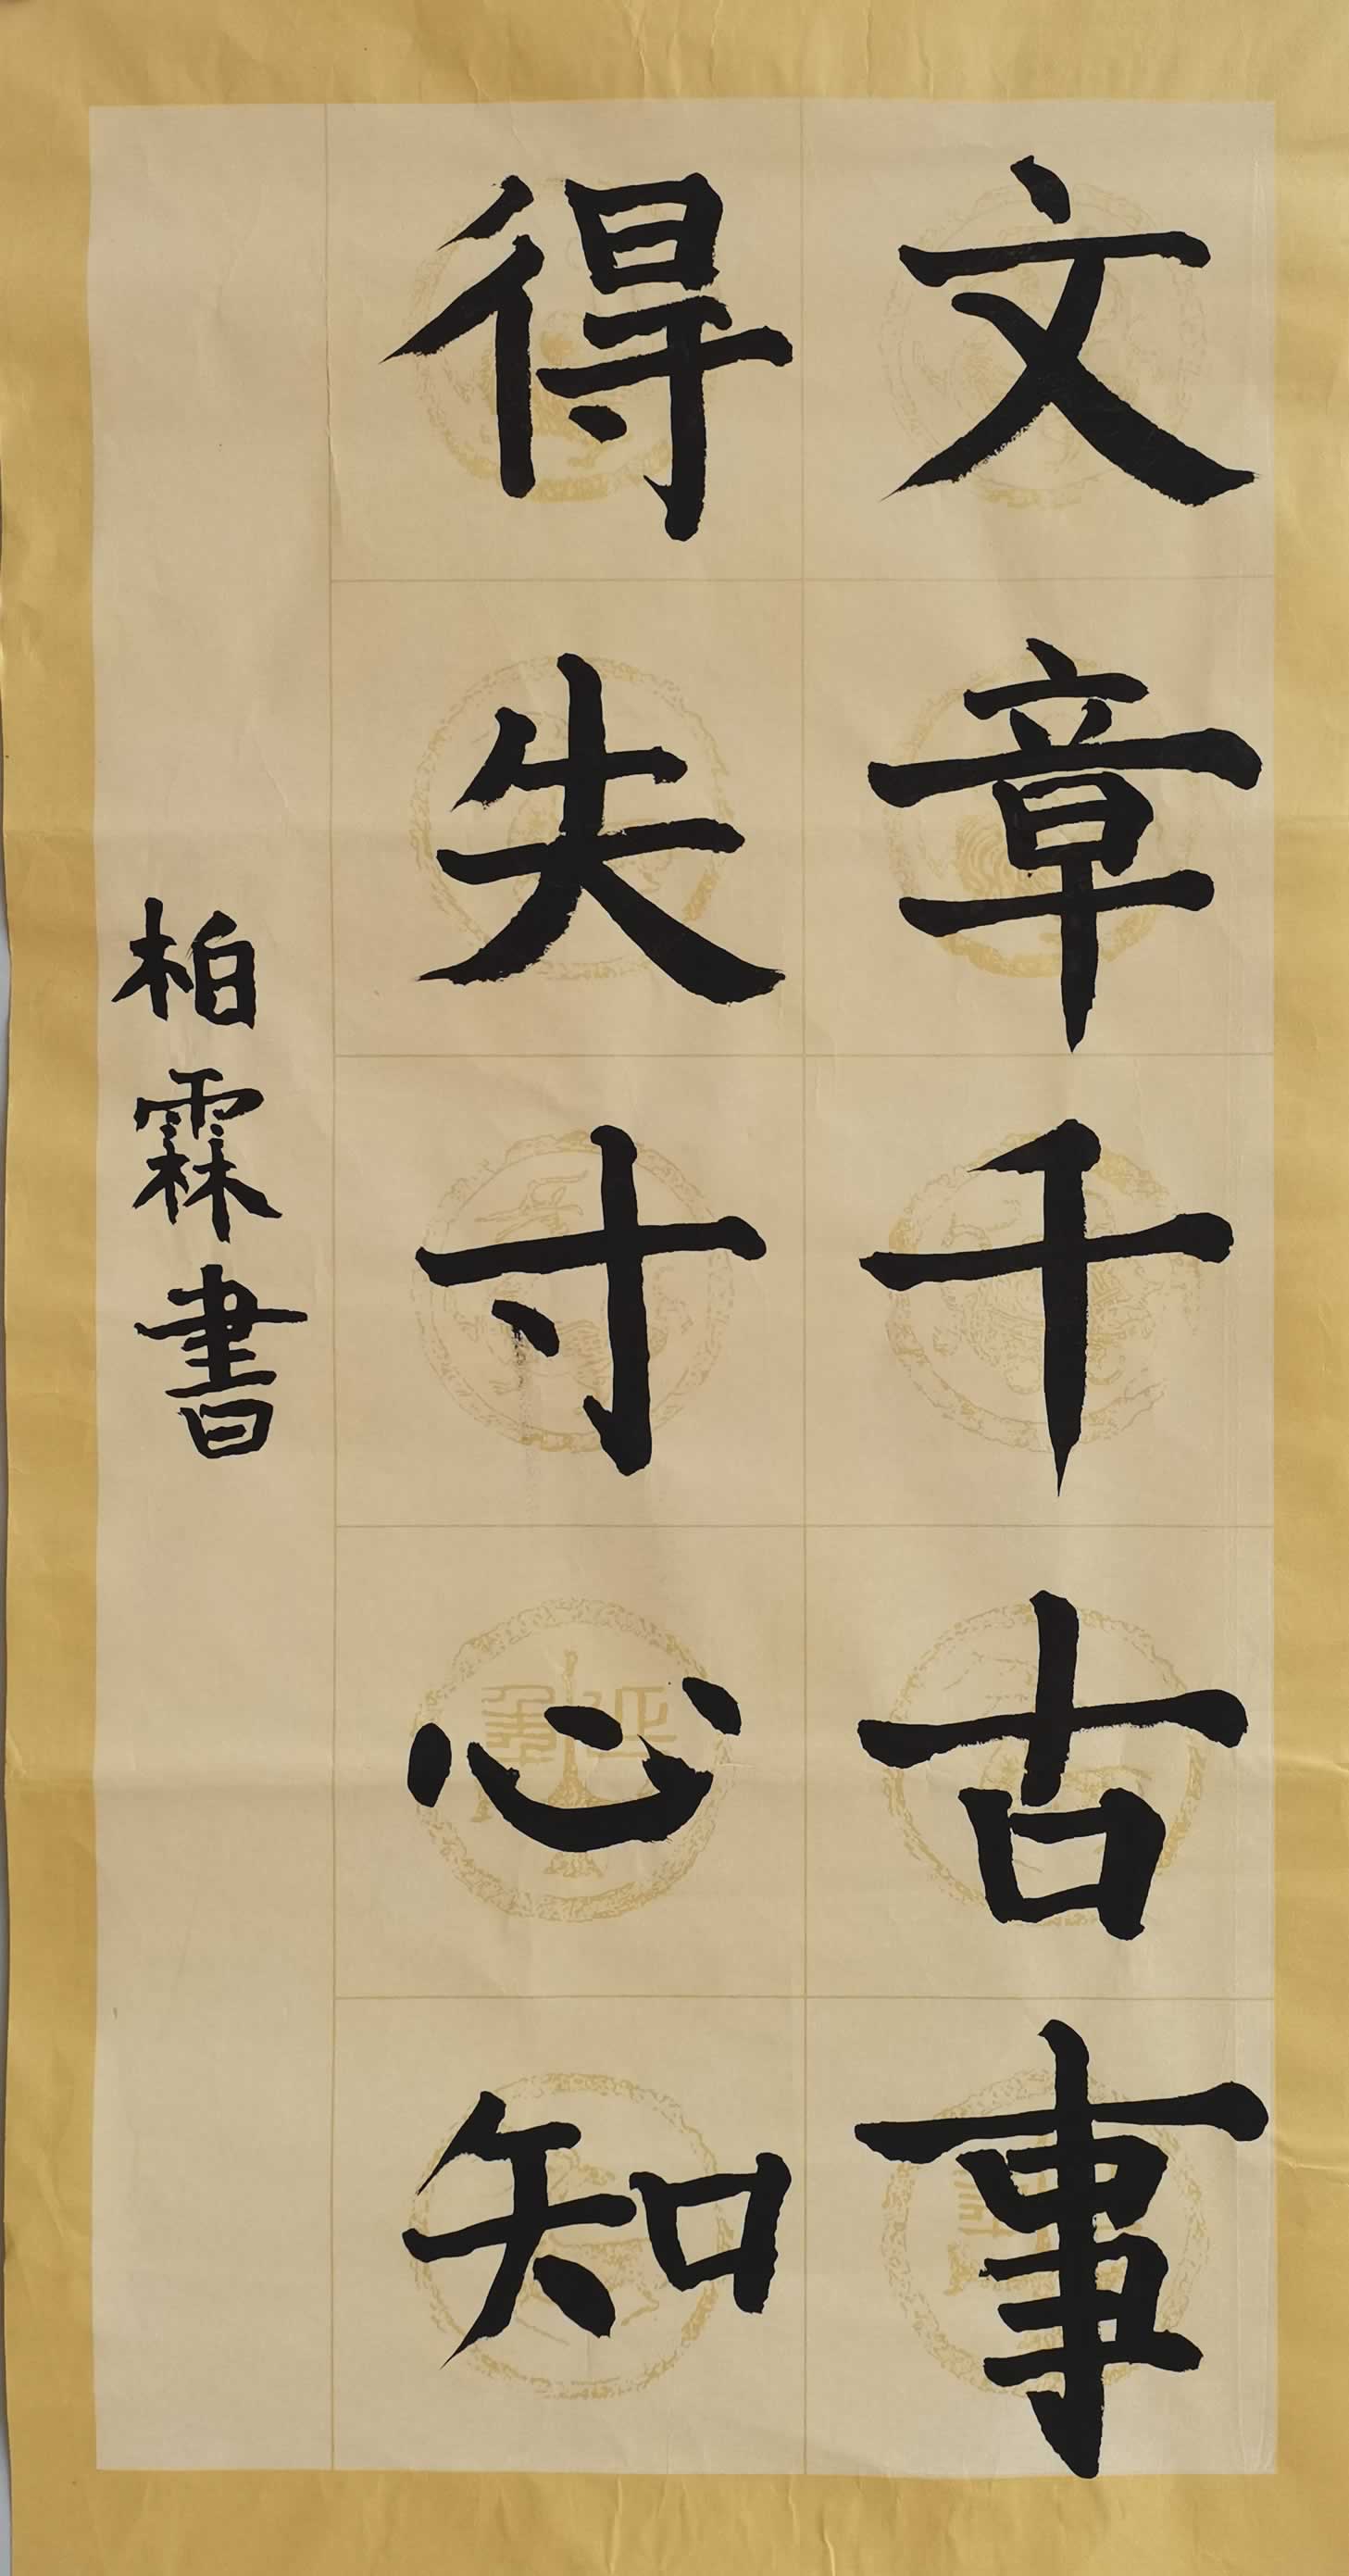 文章千古事
得失寸心知
柏霖書